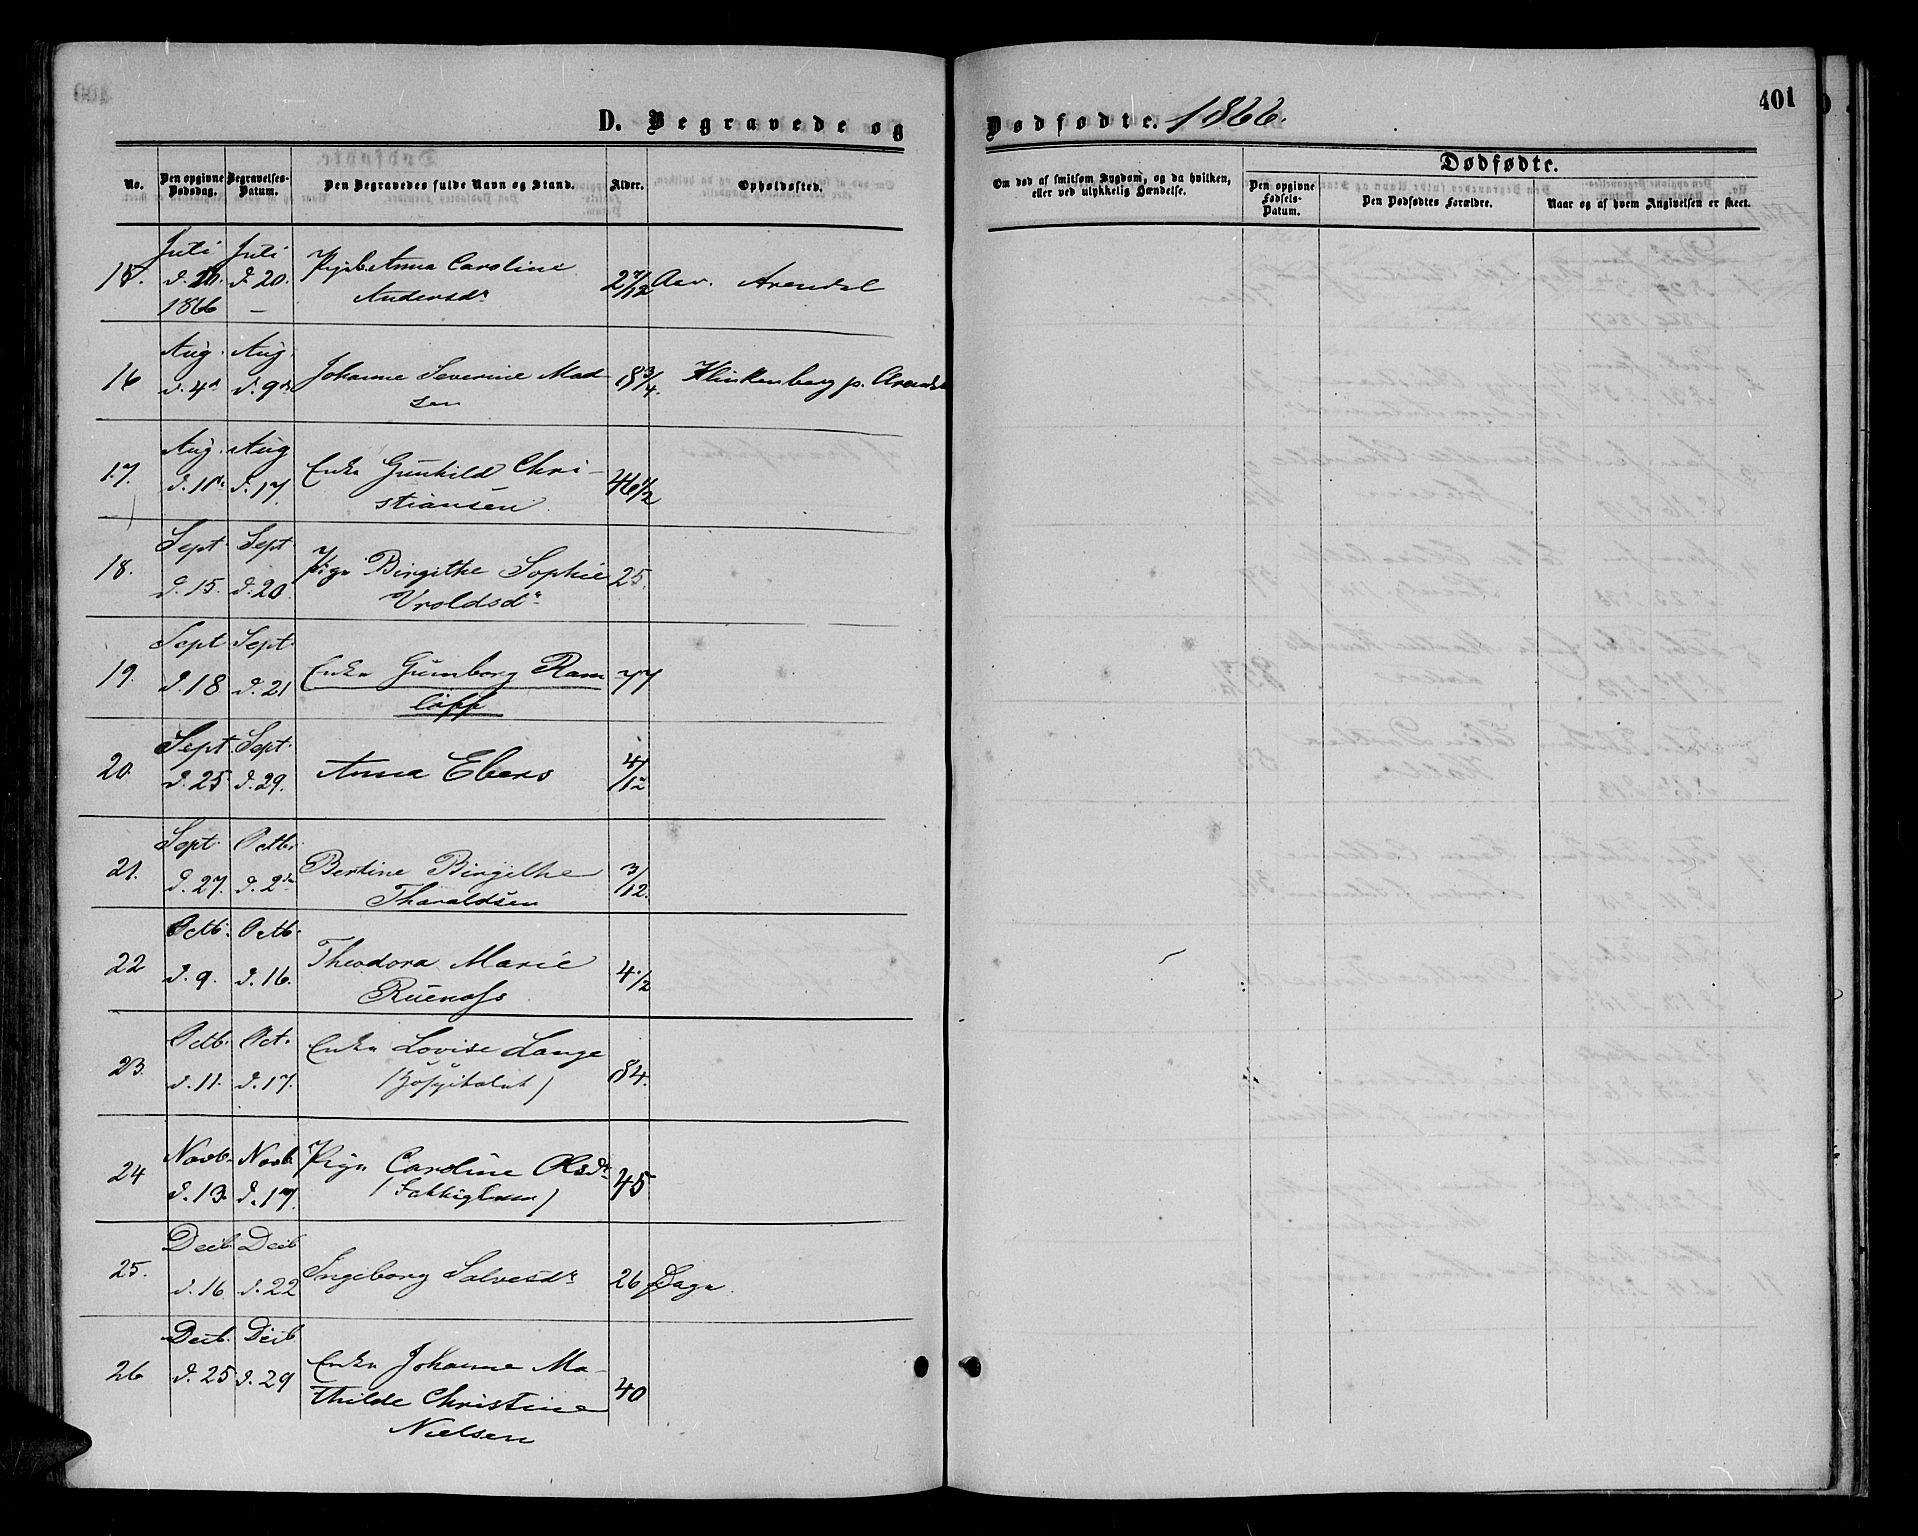 401
D. Begravede og Dødfødte. 1866.
No.
Den opgivne Dødsdag.
Begravelses-Datum.
Den Begravedes fulde Navn og Stand.
Alder.
Opholdssted.
Om død af smitsom Sygdom, og da hvilken, eller ved ulykkelig Hændelse.
Dødfødte.
Den opgivne Fødsels-Datum.
Den Dødfødtes Forældre.
Naar og af hvem Angivelsen er skeet.
Juli Juli
15. d. d. 20. Anna Caroline 2 7/12 Arendal
1866 – Andersdr
Aug. Aug.
16 d. 4d d. 9d Johanne Severine Mad- 18 3/4. Klinkenberg p. Arendal
sen
Aug. Aug
17. d. 11. d. 17. Enke Gunhild Chri- 46 1/2
stiansen
Sept. Sept
18. d. 15. d. 20. Pige Birgithe Sophie 25.
Vroldsdr
Sept Sept.
19. d. 18 d. 21 Enke Gumborg Ram 77
löff
Sept. Sept.
20. d. 25 d. 29. Anna Ebers 4/12
Sept. Octbr
21. d. 27. d. 2den Bertine Birgithe 3/12.
Tharaldsen
Octb. Octb.
22 d. 9. d. 16. Theodora Marie 4 1/2
Ruenæss
Octb. Oct.
23. d. 11. d. 17. Enke Lovise Lange 84.
(Hospitalet)
Novb. Novb.
24 d. 13. d. 17. Pige Caroline Olsdr 45
(Fattiglem)
Decb. Decb
25. d. 16 d. 22 Ingeborg Salvesdr 26
Decb. Decb
26 d. 25 d. 29 Enke Johanne Ma- 40
thilde Christine
Nielsen